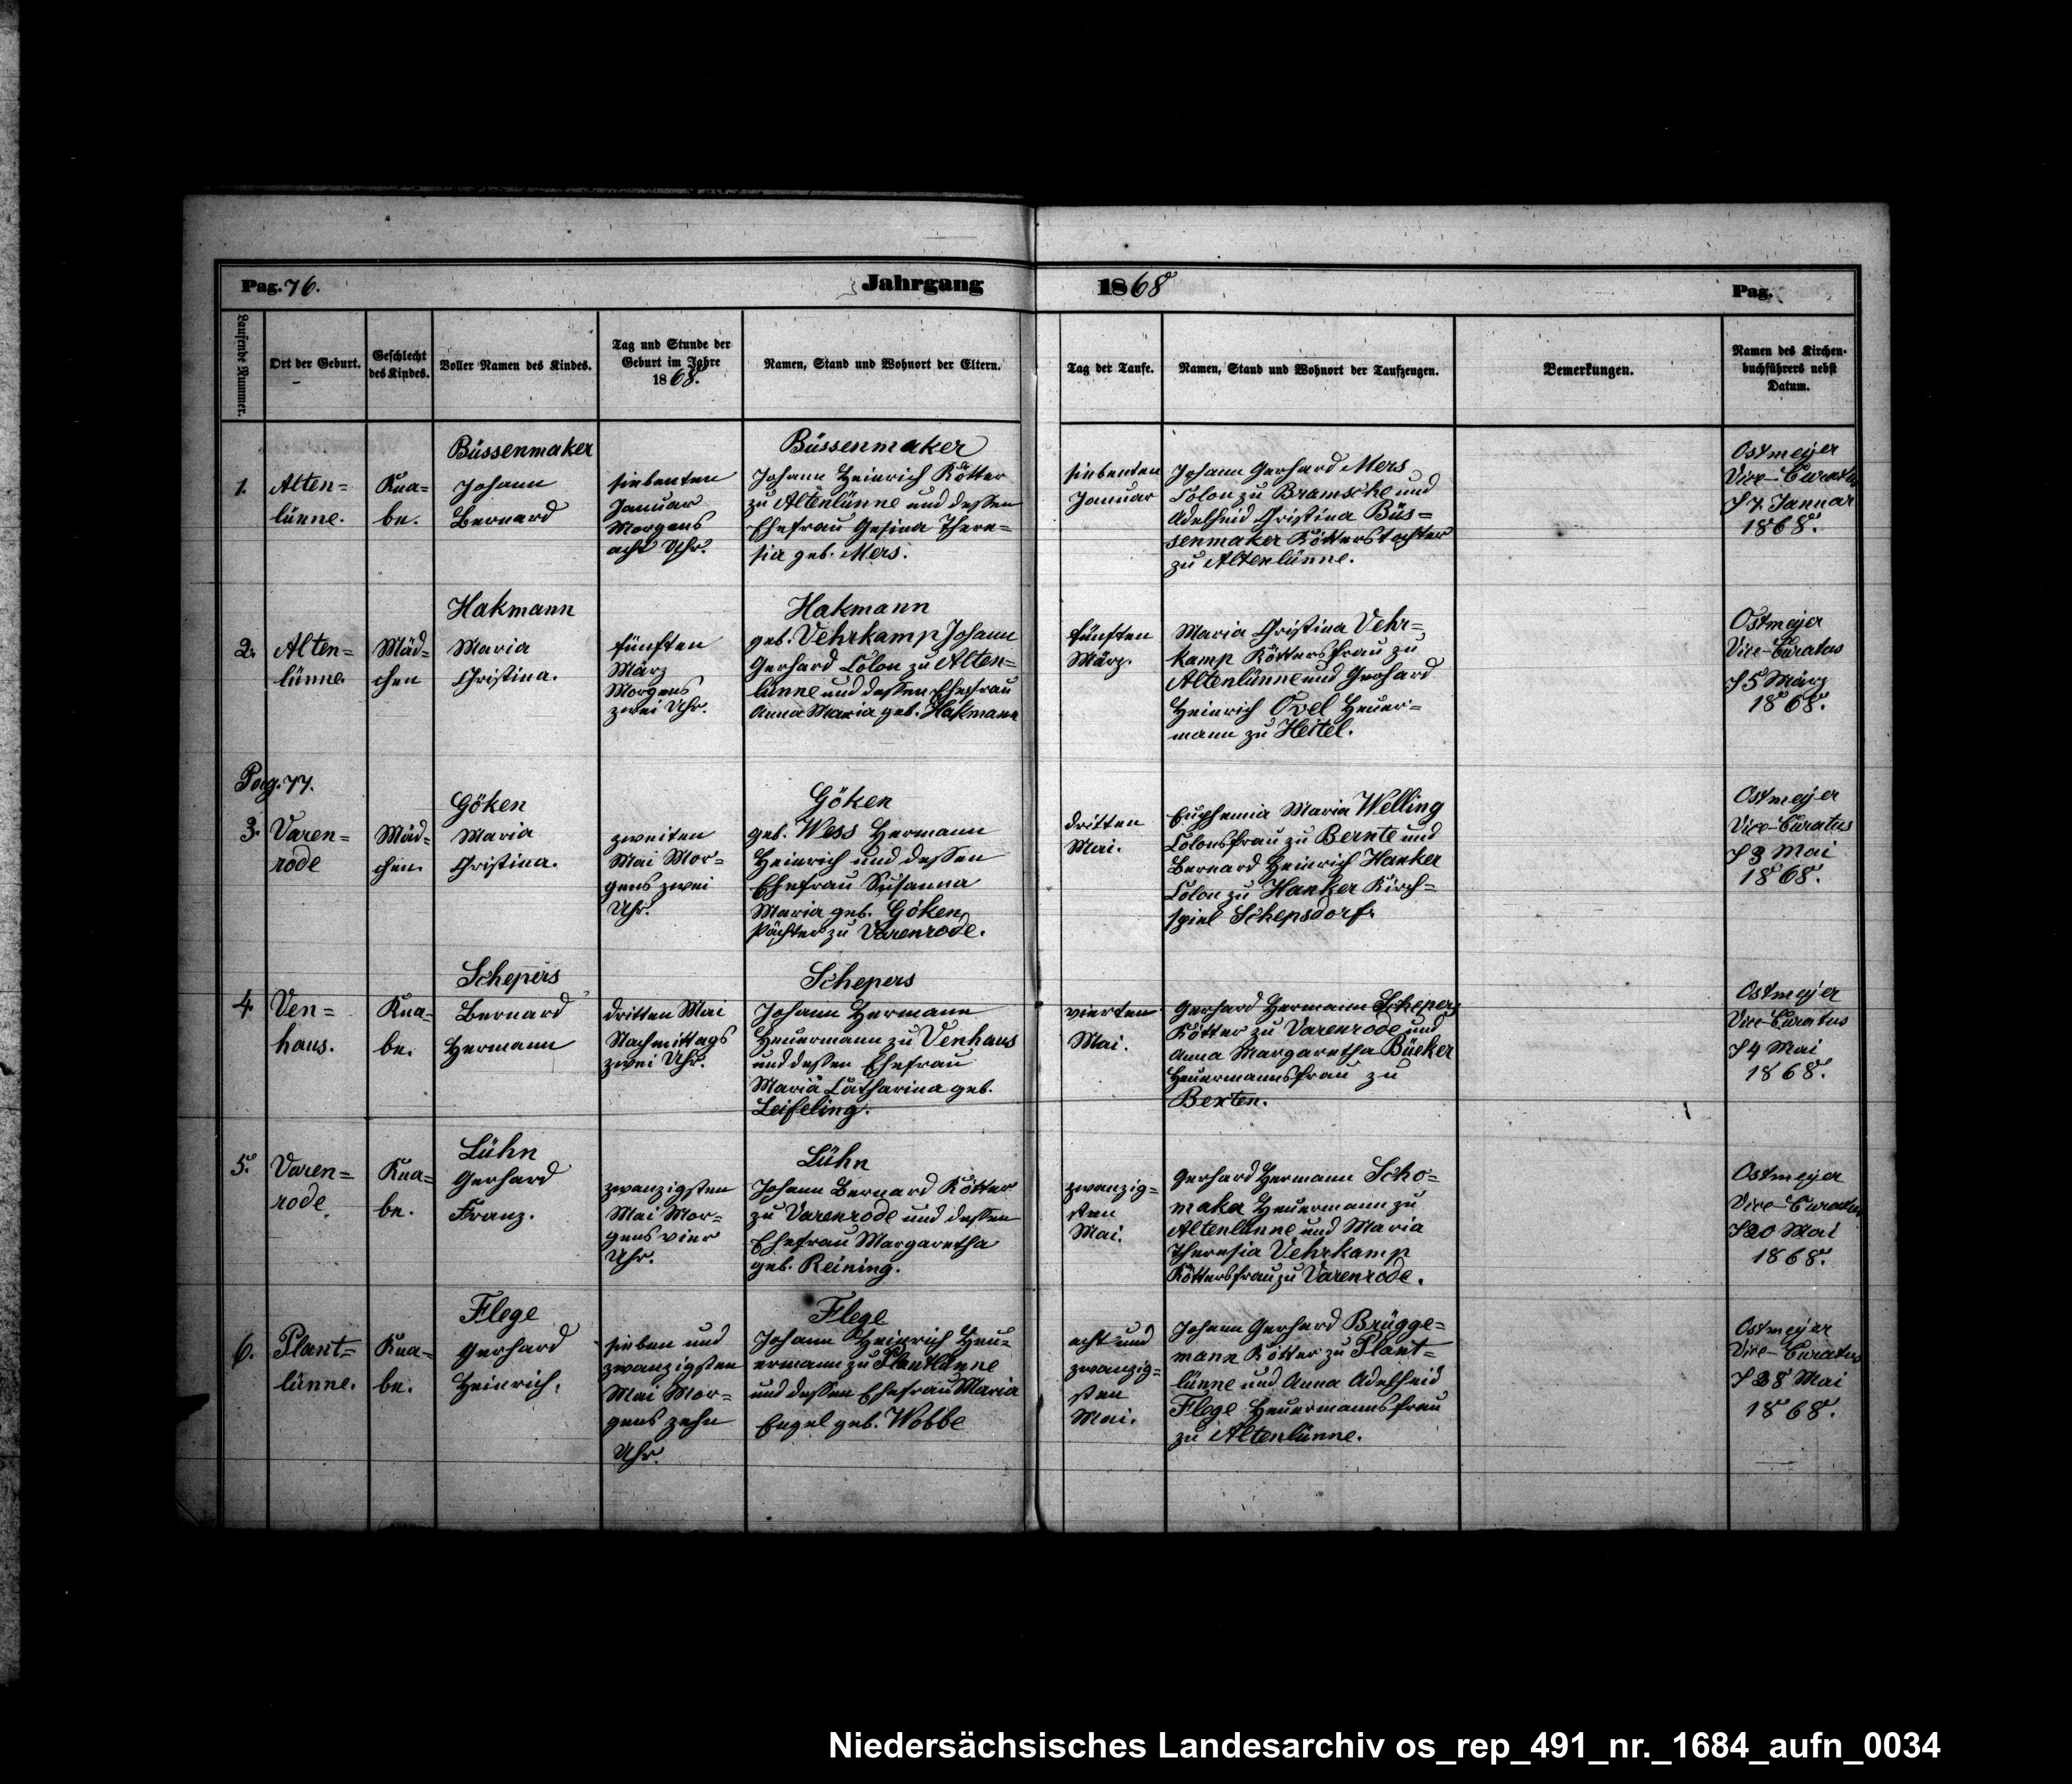 Pag. 76.
Jahrgang
1868
Pag.
Laufende Nummer.
Ort der Geburt.
Geschlecht
des Kindes.
Voller Namen des Kindes.
Tag und Stunde der
Geburt im Jahre
1868.
Namen, Stand und Wohnort der Eltern.
Tag der Taufe.
Namen, Stand und Wohnort der Taufzeugen.
Bemerkungen.
Namen des Kirchen-
buchführers nebst
Datum.
1.
Alten=
lünne.
Kna=
be.
Büssenmaker
Johann
Bernard
siebenten
Januar
Morgens
acht Uhr.
Büssenmaker
Johann Heinrich Kötter
zu Altenlünne und dessen
Ehefrau Gesina There=
sia geb. Mers.
siebenten
Januar
Johann Gerhard Mers
Colon zu Bramsche und
Adelheid Christina Büs=
senmaker Kötterstochter
zu Altenlünne.
Ostmeijer
Vice-Curatus
7. Januar
1868.
2.
Alten=
lünne.
Mäd=
chen
Hakmann
Maria
Christina.
fünften
März
Morgens
zwei Uhr.
Hakmann
geb. Vehrkamp Johann
Gerhard Colon zu Alten=
lünne und dessen Ehefrau
Anna Maria geb. Hakmann
fünften
März.
Maria Christina Vehr=
kampKöttersfrau zu
Altenlünne und Gerhard
Heinrich Ovel Heuer=
mann zu Heitel.
Ostmeijer
Vice-Curatus
5 März
1868.
Pag. 77.
3.
Varen=
rode
Mäd=
chen.
Göken
Maria
Christina.
zweiten
Mai Mor=
gens zwei
Uhr.
Göken
geb. Wess Hermann
Heinrich und dessen
Ehefrau Susanna
Maria geb. Göken,
Pächter zu Varenrode.
dritten
Mai.
Euphemia Maria Welling
Colonsfrau zu Bernte und
Bernard Heinrich Hanker
Colon zu Hanker Kirch=
spiel Schepsdorf.
Ostmeijer
Vice-Curatus
3 Mai
1868.
4.
Ven=
haus.
Kna=
be.
Schepers
Bernard
Hermann
dritten Mai
Nachmittags
zwei Uhr.
Schepers
Johann Hermann
Heuermann zu Venhaus
und dessen Ehefrau
Maria Catharina geb.
Leifeling.
vierten
Mai.
Gerhard Hermann Schepers
Kötter zu Varenrode und
Anna Margaretha Büeker
Heuermannsfrau zu
Bexten.
Ostmeijer
Vice-Curatus
4 Mai
1868.
5.
Varen=
rode.
Kna=
be.
Lühn
Gerhard
Franz.
zwanzigsten
Mai Mor=
gens vier
Uhr.
Lühn
Johann Bernard Kötter
zu Varenrode und dessen
Ehefrau Margaretha
geb. Reining.
zwanzig=
sten
Mai.
Gerhard Hermann Scho=
maker Heuermann zu
Altenlünne und Maria
Theresia Vehrkamp
Köttersfrau zu Varenrode.
Ostmeijer
Vice-Curatus
20 Mai
1868.
6.
Plant=
lünne.
Kna=
be.
Flege
Gerhard
Heinrich.
sieben und
zwanzigsten
Mai Mor=
gens zehn
Uhr.
Flege
Johann Heinrich Heu=
ermann zu Plantlünne
und dessen Ehefrau Maria
Engel geb. Wobbe
acht und
zwanzig=
sten
Mai.
Johann Gerhard Brügge=
mann Kötter zu Plant=
lünne und Anna Adelheid
Flege Heuermannsfrau
zu Altenlünne.
Ostmeijer
Vice-Curatus
28 Mai
1868.
Niedersächsisches Landesarchiv os_rep_491_nr._1684_aufn_0034